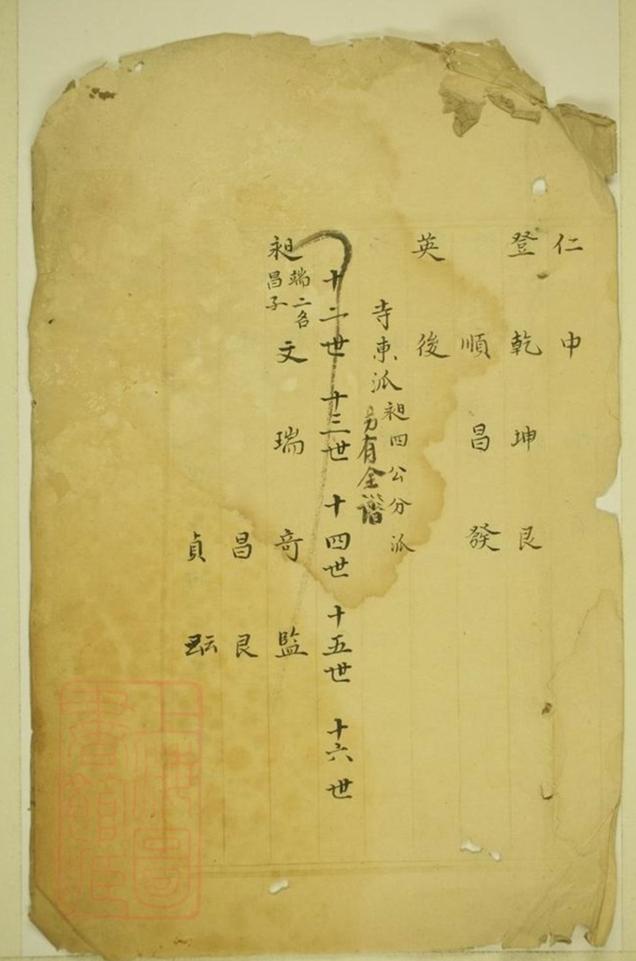 仁中
登乾坤艮
順昌發
英後
寺東派
昶四公分派
另有全譜
十二世 十三世 十四世 十五世 十六世
昶
端二名
昌子
文瑞奇監
昌艮
貞
上海圖書館藏